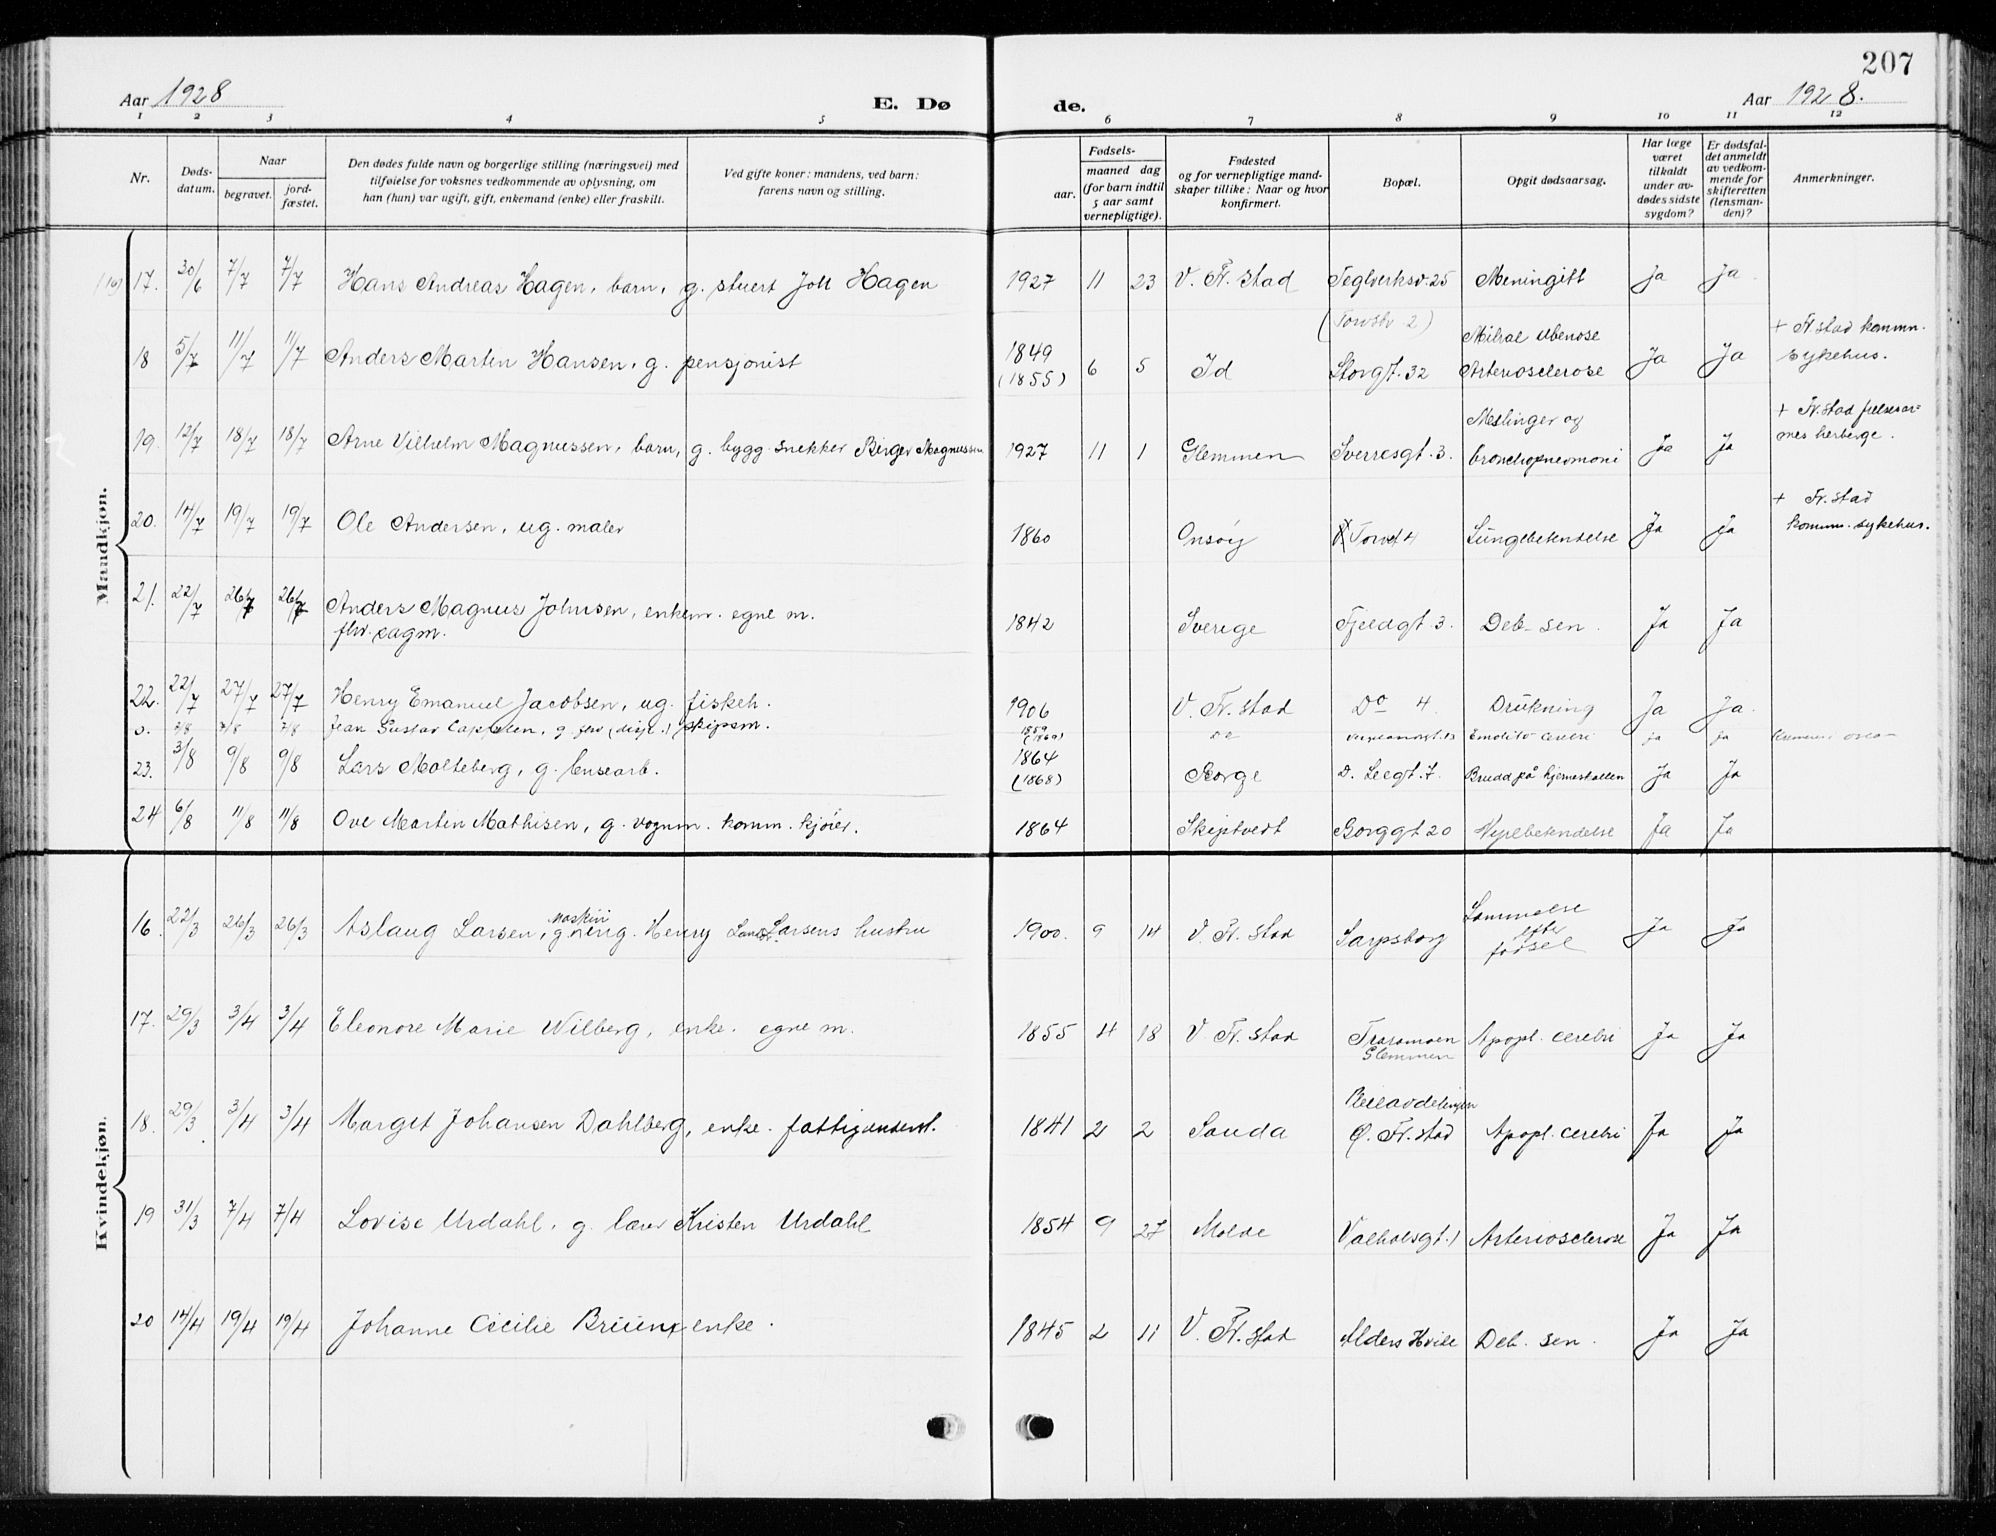 207
Aar 1928 E. Dø de. Aar 1928.
1 2 3 4 5 6 7 8 9 10 11 12
Nr. Døds-datum. Naar begravet. jord-fæstet. Den dødes fulde navn og borgerlige stilling (næringsvei) med tilføielse for voksnes vedkommende av oplysning, om han (hun) var ugift, gift, enkemand (enke) eller fraskilt. Ved gifte koner: mandens, ved barn: farens navn og stilling. Fødsels- aar. maaned dag (for barn indtil 5 aar samt vernepligtige). Fødested og for vernepligtige mand-skaper tillike: Naar og hvor konfirmert. Bopæl. Opgit dødsaarsag. Har læge været tilkaldt under av-dødes sidste sygdom? Er dødsfal-det anmeldt av vedkom-mende for skifteretten (lensman-den)? Anmerkninger.
Mandkjøn.
17. 30/6 7/7 7/7 Hans Andreas Hagen, barn, g. stuert Hagen 1927 11 23 V. Fr. stad Teglverksv. 25 Meningitt Ja Ja
18 5/7 11/7 11/7 Anders Martin Hansen, g. pensjonist 1849 (1855) 6 5 Id Storgt. 32 Arteriosclerose Ja Ja + Fr. stad komm. sykehus.
19. 12/7 18/7 18/7 Arne Vilhelm Magnussen, barn, g. bygg snekker Birger Magnussen 1927 11 1 Glemmen Sverresgt. 3. Meslinger og bronchopneumoni Ja Ja + Fr. stad herberge.
20. 14/7 19/7 19/7 Ole Andersen, ug. maler 1860 Onsøy Torvet 4 Lungebetendelse Ja Ja + Fr. stad komm. sykehus.
21. 22/7 26/7 26/7 Anders Magnus Johnsen, enkem. egne m.
fhv. sagm. 1842 Sverige Fjeldgt. 3. Deb. sen. Ja Ja
22. 22/7 27/7 27/7 Henry Emanuel Jacobsen, ug. fiskeh. 1906 V. Fr. stad Do 4 Drukning Ja Ja.
o. 2/8 Jean Gustav Cappelen, g. fhv. (disp.) skipsm. 1859 (1860) Do cerebri ja ja
23. 3/8 9/8 9/8 Lars Molteberg, g. 1864 (1868) Borge Brudd på hjerneskallen Ja Ja
24 6/8 11/8 11/8 Ove Martin Mathisen, g. vognm. komm. kjører. 1864 Skiptvedt Borggt 20 Nyrebetendelse Ja Ja
Kvindekjøn.
16. 22/3 26/3 26/3 Aslaug Larsen, g. maskin ing. Henry Larsens hustru 1900. 9 14 V. Fr. stad Sarpsborg Lammelse efter fødsel Ja Ja
17. 29/3 3/4 3/4 Eleonore Marie Wilberg, enke. egne m. 1855 4 18 V. Fr. stad Traramoen Glemmen Apopl. cerebri Ja Ja
18. 29/3 3/4 3/4 Marget Johansen Dahlberg, enke. fattigunderst. 1841 2 2 Sauda Pleieavdelingen Ø. Fr. stad Apopl. cerebri Ja Ja
19 31/3 7/4 7/4 Lovise Urdahl, g. lærer Kristen Urdahl 1854 9 27 Molde Valhalsgt. 1 Arteriosclerose Ja Ja
20 14/4 19/4 19/4 Johanne Cecilie Bruun, enke. 1845 2 11 V. Fr. stad Alders Hvile Deb. sen. Ja Ja